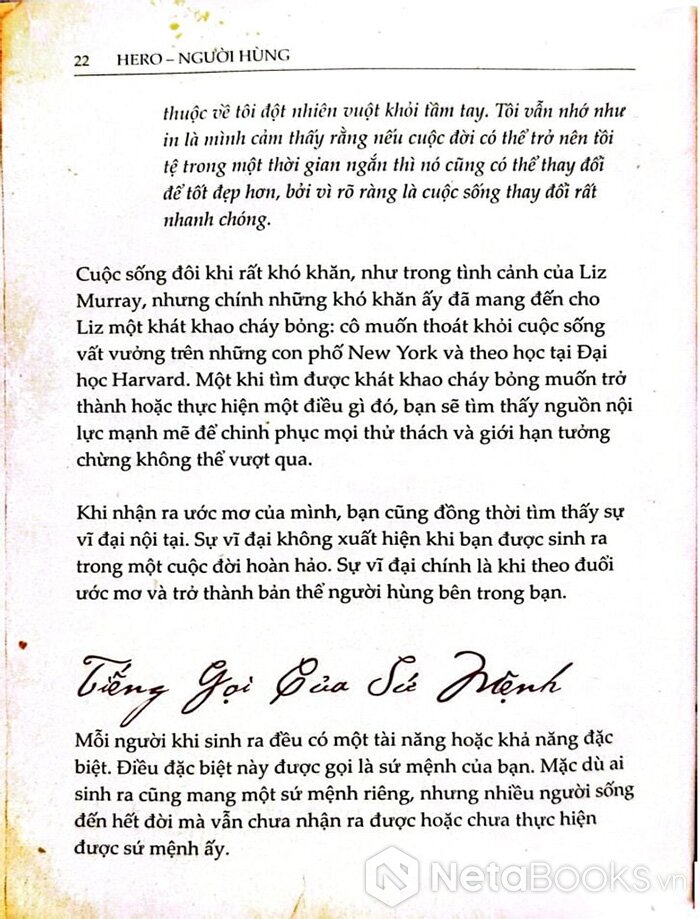 22 HERO – NGƯỜI HÙNG
thuộc về tôi đột nhiên vuột khỏi tầm tay. Tôi vẫn nhớ như
in là mình cảm thấy rằng nếu cuộc đời có thể trở nên tồi
tệ trong một thời gian ngắn thì nó cũng có thể thay đổi
để tốt đẹp hơn, bởi vì rõ ràng là cuộc sống thay đổi rất
nhanh chóng.
Cuộc sống đôi khi rất khó khăn, như trong tình cảnh của Liz
Murray, nhưng chính những khó khăn ấy đã mang đến cho
Liz một khát khao cháy bỏng: cô muốn thoát khỏi cuộc sống
vất vưởng trên những con phố New York và theo học tại Đại
học Harvard. Một khi tìm được khát khao cháy bỏng muốn trở
thành hoặc thực hiện một điều gì đó, bạn sẽ tìm thấy nguồn nội
lực mạnh mẽ để chinh phục mọi thử thách và giới hạn tưởng
chừng không thể vượt qua.
Khi nhận ra ước mơ của mình, bạn cũng đồng thời tìm thấy sự
vĩ đại nội tại. Sự vĩ đại không xuất hiện khi bạn được sinh ra
trong một cuộc đời hoàn hảo. Sự vĩ đại chính là khi theo đuổi
ước mơ và trở thành bản thể người hùng bên trong bạn.
Tiếng Gọi Của Sứ Mệnh
Mỗi người khi sinh ra đều có một tài năng hoặc khả năng đặc
biệt. Điều đặc biệt này được gọi là sứ mệnh của bạn. Mặc dù ai
sinh ra cũng mang một sứ mệnh riêng, nhưng nhiều người sống
đến hết đời mà vẫn chưa nhận ra được hoặc chưa thực hiện
được sứ mệnh ấy.
NetaBooks.vn